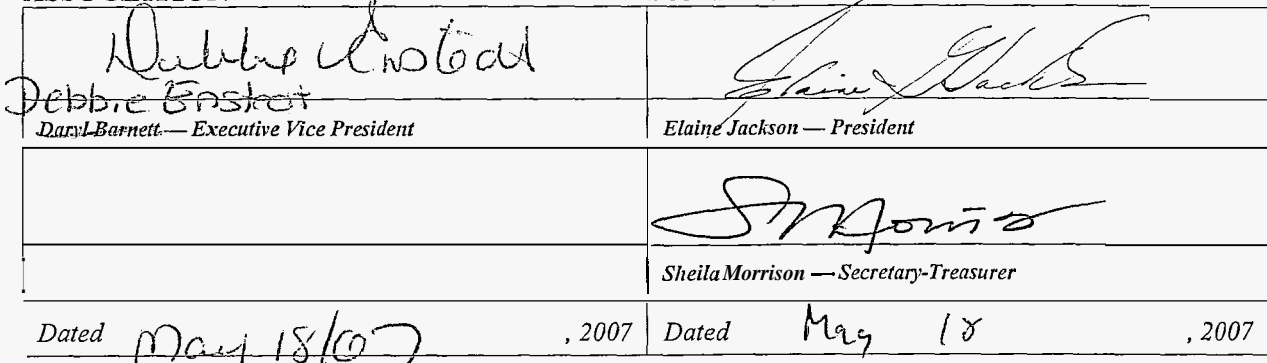 Debbie Enstedt
Debbie Enstedt
Daryl Barnett — Executive Vice President
Elaine Jackson
Elaine Jackson — President
S Morrison
Sheila Morrison — Secretary-Treasurer
Dated May 18/07 , 2007
Dated May 18 , 2007